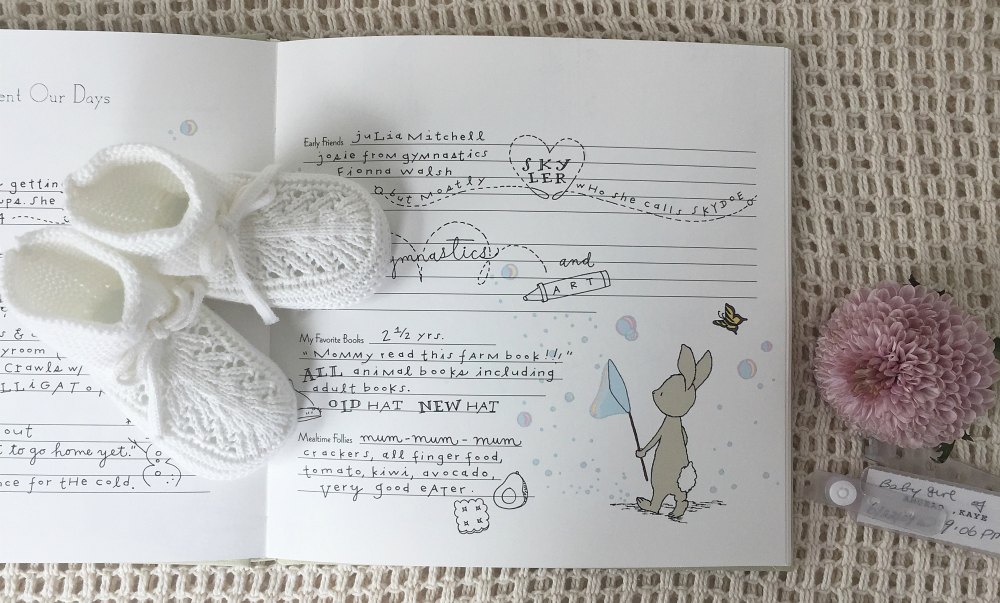 ent Our Days
getting
ups. She
& c
yroom
Crawls w/
out
to go home yet."
nce for tHe cold.
Early Friends juLia Mitchell
josie from gymnastics
Fionna Walsh
But Mostly
SKY
LER
wHo she calls SKYDOE
ymnastics
and
ART
My Favorite Books 2 1/2 yrs.
"MoMMy read this fArM book !!!"
ALL animal books including
adult books.
OLD HAT NEW HAT
Mealtime Follies mum-mum-mum
crackers, all finger food,
tomato, kiwi, avocado.
very good eATer.
Baby girl
, KAYE
9:06 PM